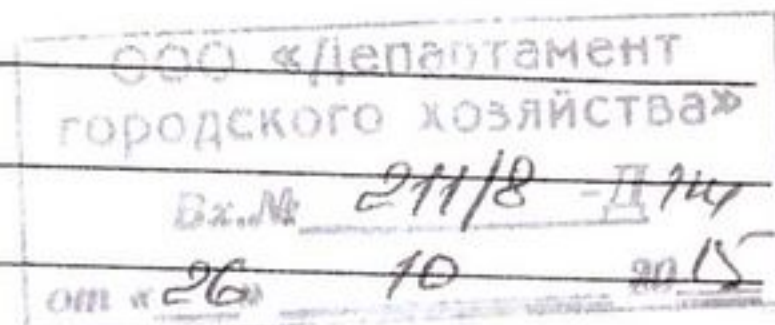 ООО «Департамент
городского хозяйства»
Вх.№ 211/8 -Д
от «26» 10 20 15